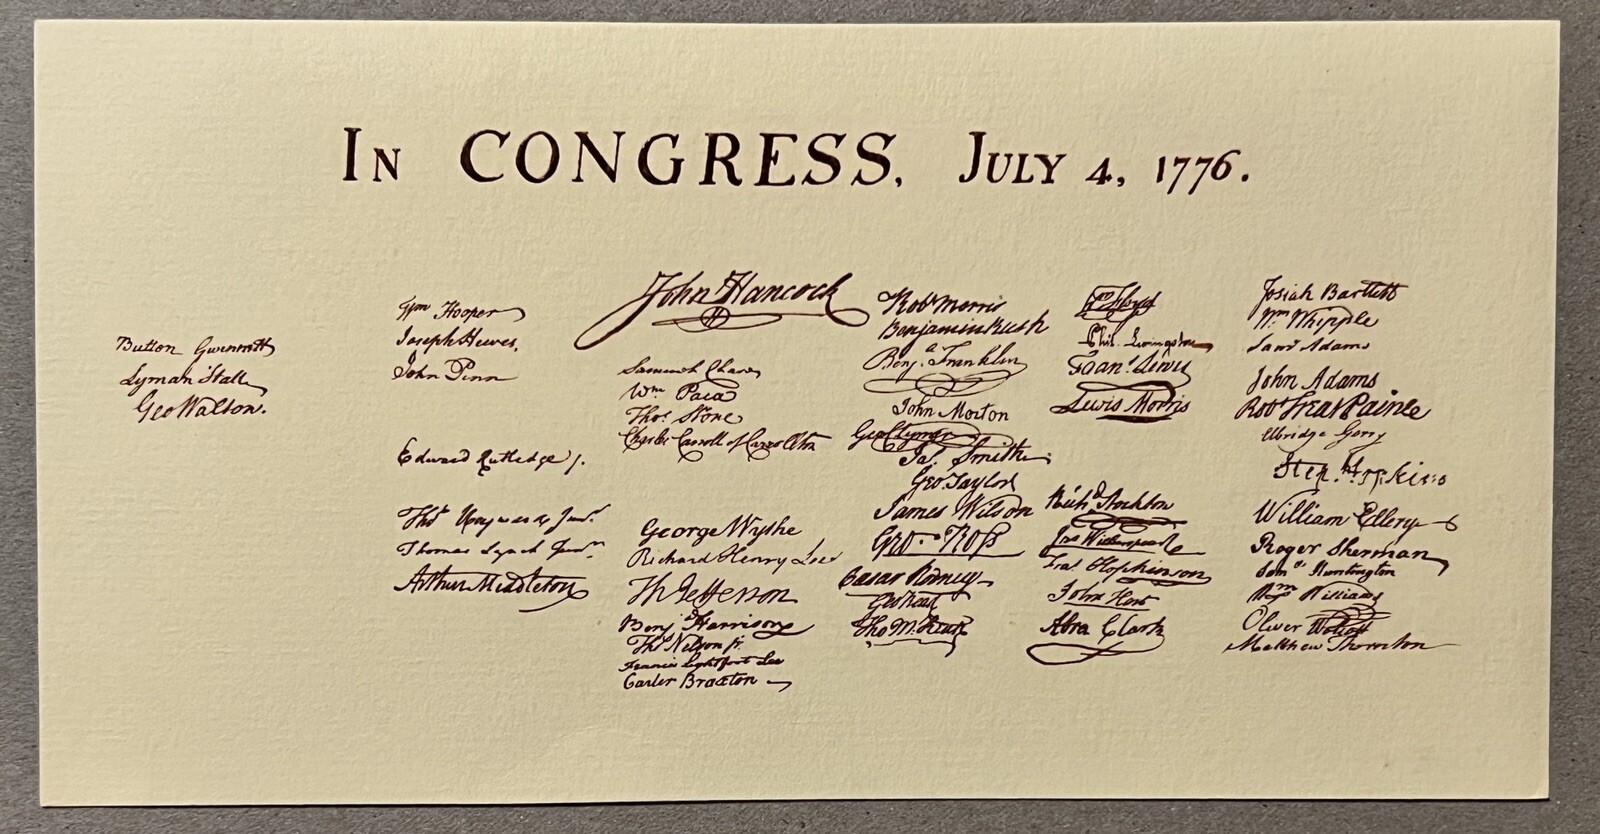 In CONGRESS, July 4, 1776.
Button Gwinnett
Lyman Hall
Geo Walton.
Wm Hooper
Joseph Hewes,
John Penn
Edward Rutledge j.
Thos Heyward Junr.
Thomas Lynch Junr.
Arthur Middleton
John Hancock
Samuel Chase
Wm Paca
Thos. Stone
Charles Carroll of Carrollton
George Wythe
Richard Henry Lee
Th Jefferson
Benj Harrison
Thos Nelson jr.
Francis Lightfoot Lee
Carter Braxton
Robt Morris
Benjamin Rush
Benja. Franklin
John Morton
Geo Clymer
Jas. Smith.
Geo. Taylor
James Wilson
Geo. Ross
Caesar Rodney
Geo Read
Tho M:Kean
Wm Floyd
Phil. Livingston
Frans. Lewis
Lewis Morris
Richd Stockton
Jno Witherspoon
Fras. Hopkinson
John Hart
Abra Clark
Josiah Bartlett
Wm. Whipple
Saml Adams
John Adams
Robt Treat Paine
Elbridge Gerry
Step. Hopkins
William Ellery
Roger Sherman
Saml Huntington
Wm. Williams
Oliver Wolcott
Matthew Thornton